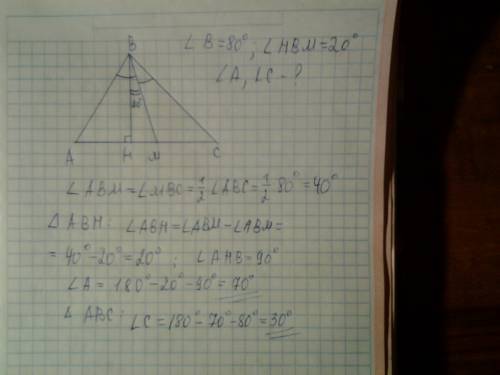 ∠B=80°; ∠HBM=20°
∠A, ∠C - ?
B
A H M C
∠ABM=∠MBC=1/2 ∠ABC=1/2 80°=40°
△ABH: ∠ABH=∠ABM-∠ABM=
=40°-20°=20°; ∠AHB=90°
∠A=180°-20°-90°=70°
△ABC: ∠C=180°-70°-80°=30°